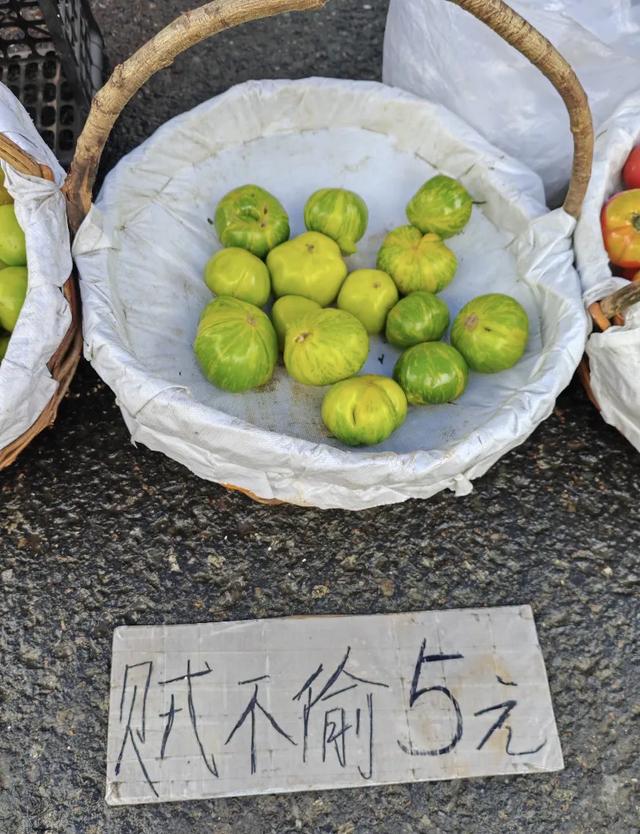 贼不偷5元